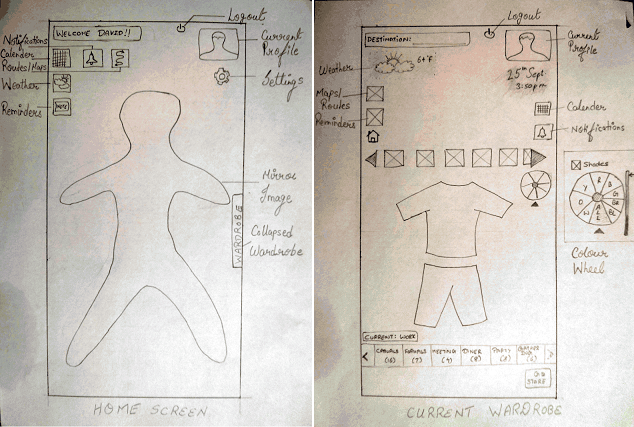 Logout
WELCOME DAVID!!
Notifications
Calender
Routes/Maps
Current
Profile
Weather
Settings
Reminders
Mirror
Image
WARDROBE
Collapsed
Wardrobe
HOME SCREEN
Logout
DESTINATION:
Current
Profile
Weather
64°F
25th Sept
3:50pm
Maps/
Routes
Reminders
Calender
Notifications
Shades
Colour
Wheel
CURRENT: WORK
CASUALS
(16)
FORMALS
(7)
MEETING
(4)
DINER
(8)
PARTY
STORE
CURRENT WARDROBE